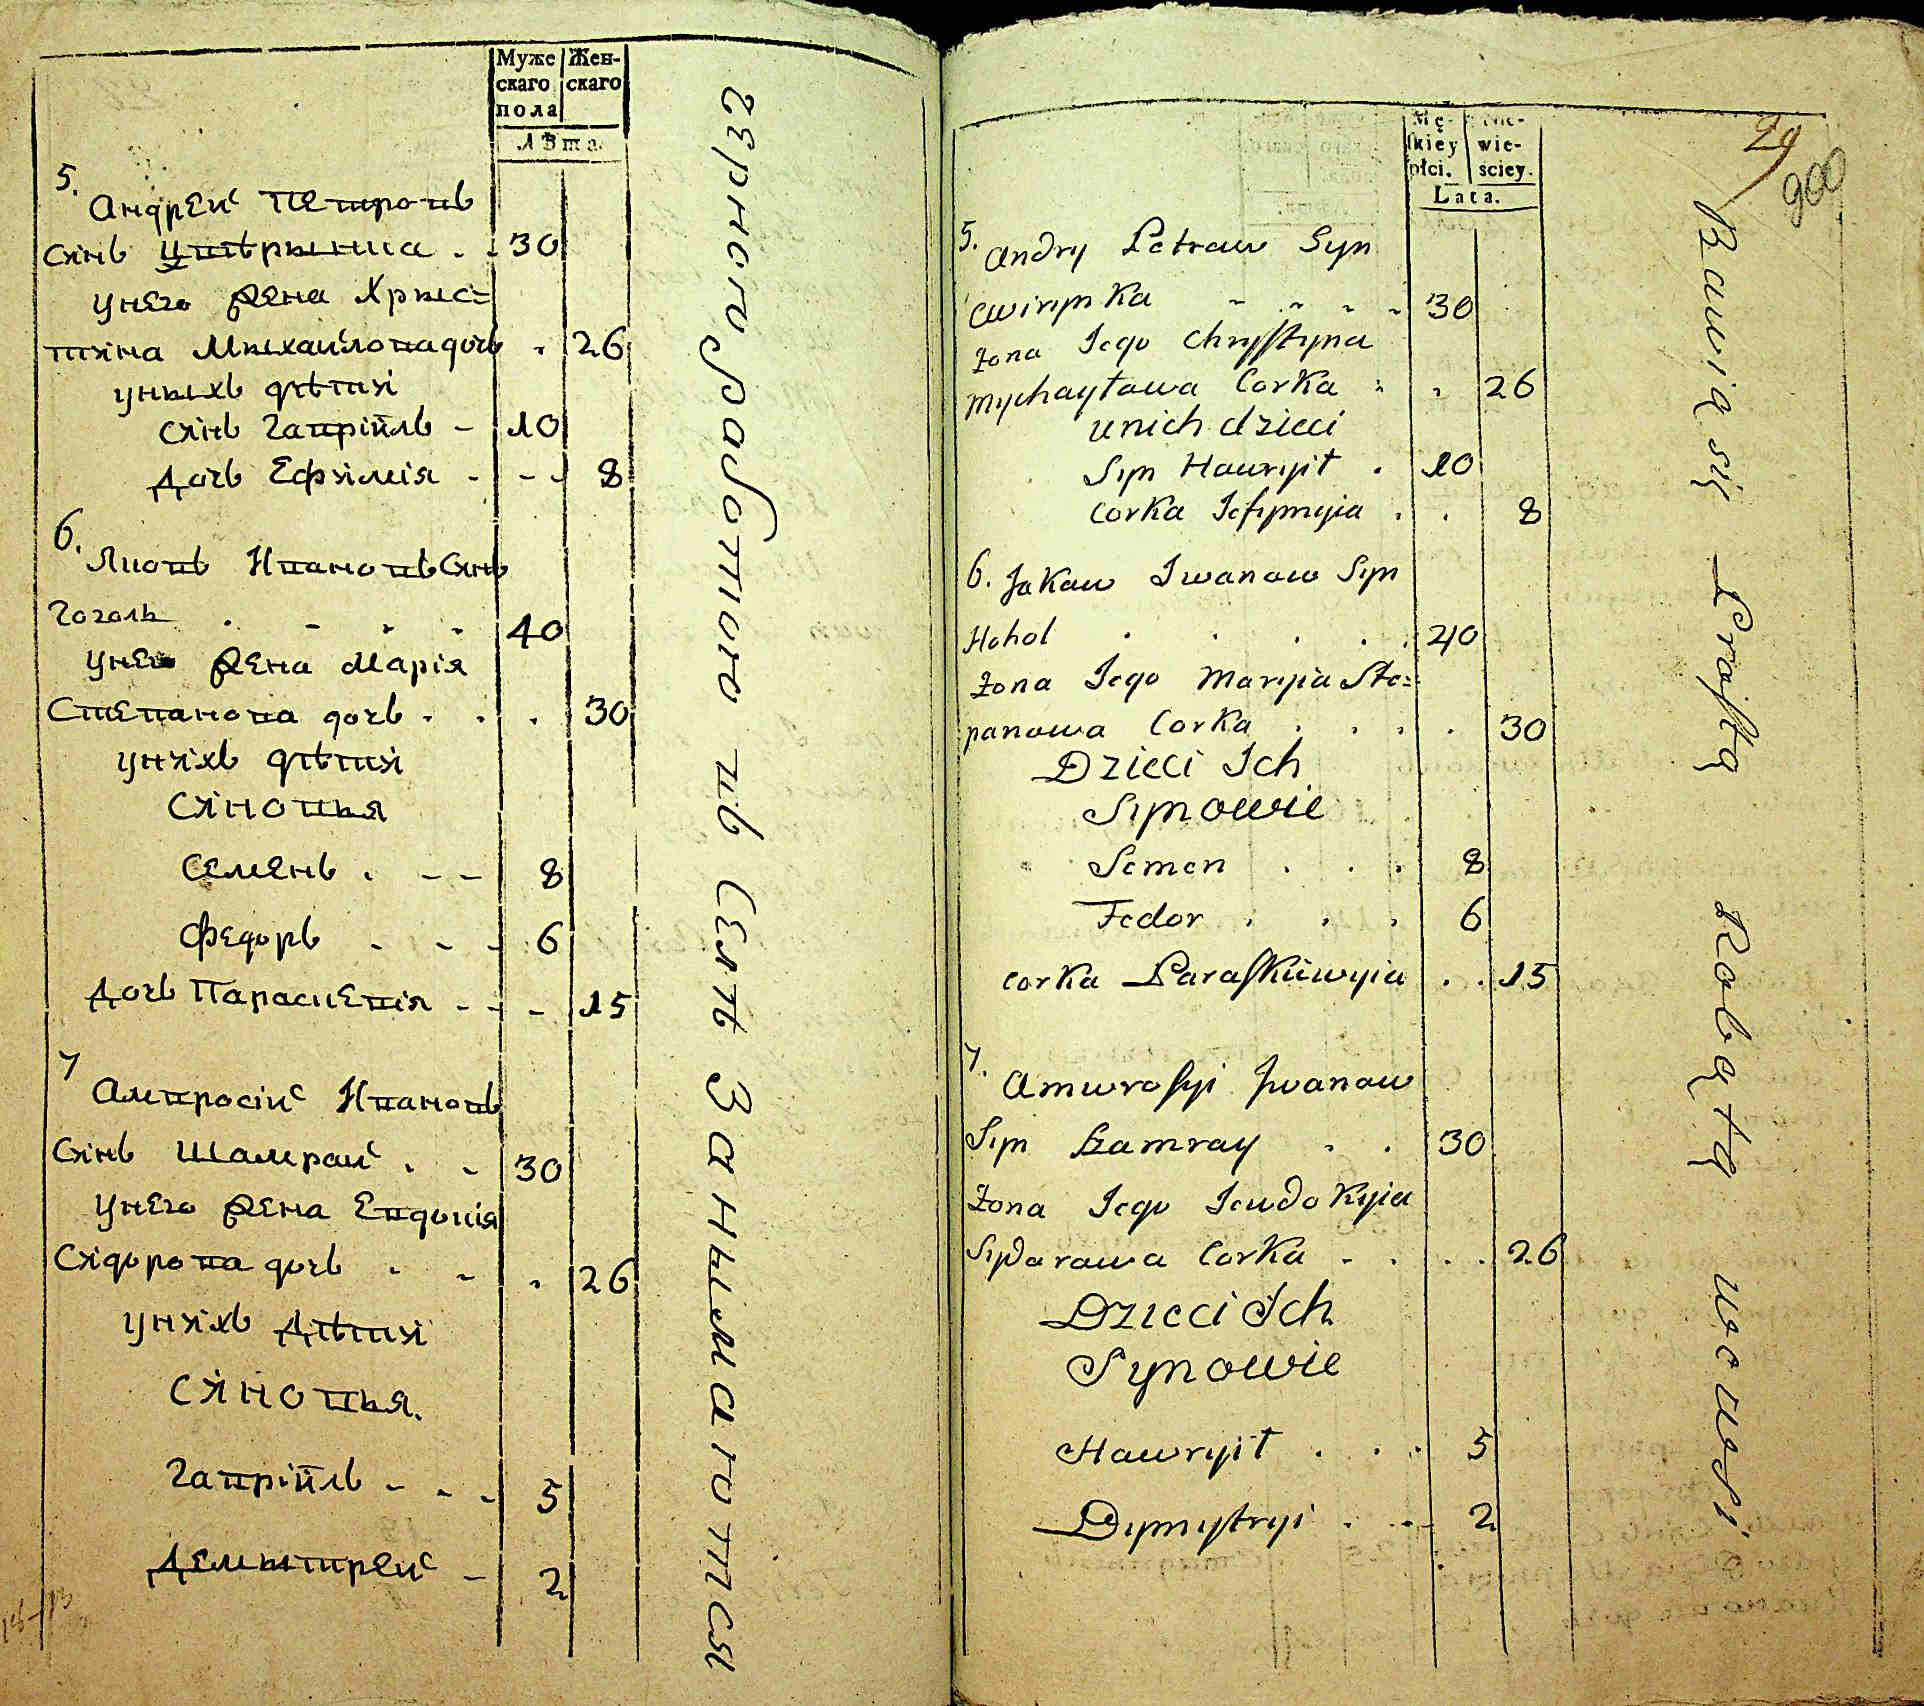 Муже
скаго
пола
Жен-
скаго
Лѣта.
5.
Андрей Петровъ
Синъ Цвѣрынка . . 30
унего Жена Хрыс=
тина Мыхайловадочь . 26
уныхъ дѣти
Синъ Гавріилъ - 10
Дочь Ефимія - - - 8
6.
Яковъ Ивановъ Синъ
Гоголь . - . . 40
унего Жена Марія
Степанова дочь . . . 30
унихъ дѣти
Синовья
Семенъ . - - 8
Федоръ . - - 6
Дочь Параскевія - - - 15
7
Амвросій Ивановъ
Синъ Шамрай . - 30
унего Жена Евдокія
Сидорова дочь . - . 26
унихъ Дѣти
Синовья.
Гавріилъ - - - 5
Демытрей - 2
Черноработною въ Селѣ Занымаются
Mę-
skiey
płci.
Nie-
wie-
sciey.
Lata.
29
900
5. Andry Petraw Syn
Cwirynka - - - - 30
żona Jego Chrystyna
Mychayłowa Corka . . 26
unich dzieci
Syn Hawryił . 10
Corka Jefymyia . . 8
6. Jakaw Iwanaw Syn
Hohol . . . . . 40
żona Jego Maryia Ste=
panowa Corka . . . . 30
Dzieci Ich
Synowie
Semen . . . 8
Fedor . . . 6
Corka Paraskiiwyia . . 15
7.
Amwrosyi Iwanaw
Syn Szamray . . 30
żona Jego Jewdokyia
Sydarawa Corka - . . . 26
Dzieci Ich
Synowie
Hawryił . . . 5
Dymytryi . . - 2
Bawią się Prostą Robątą we wsi